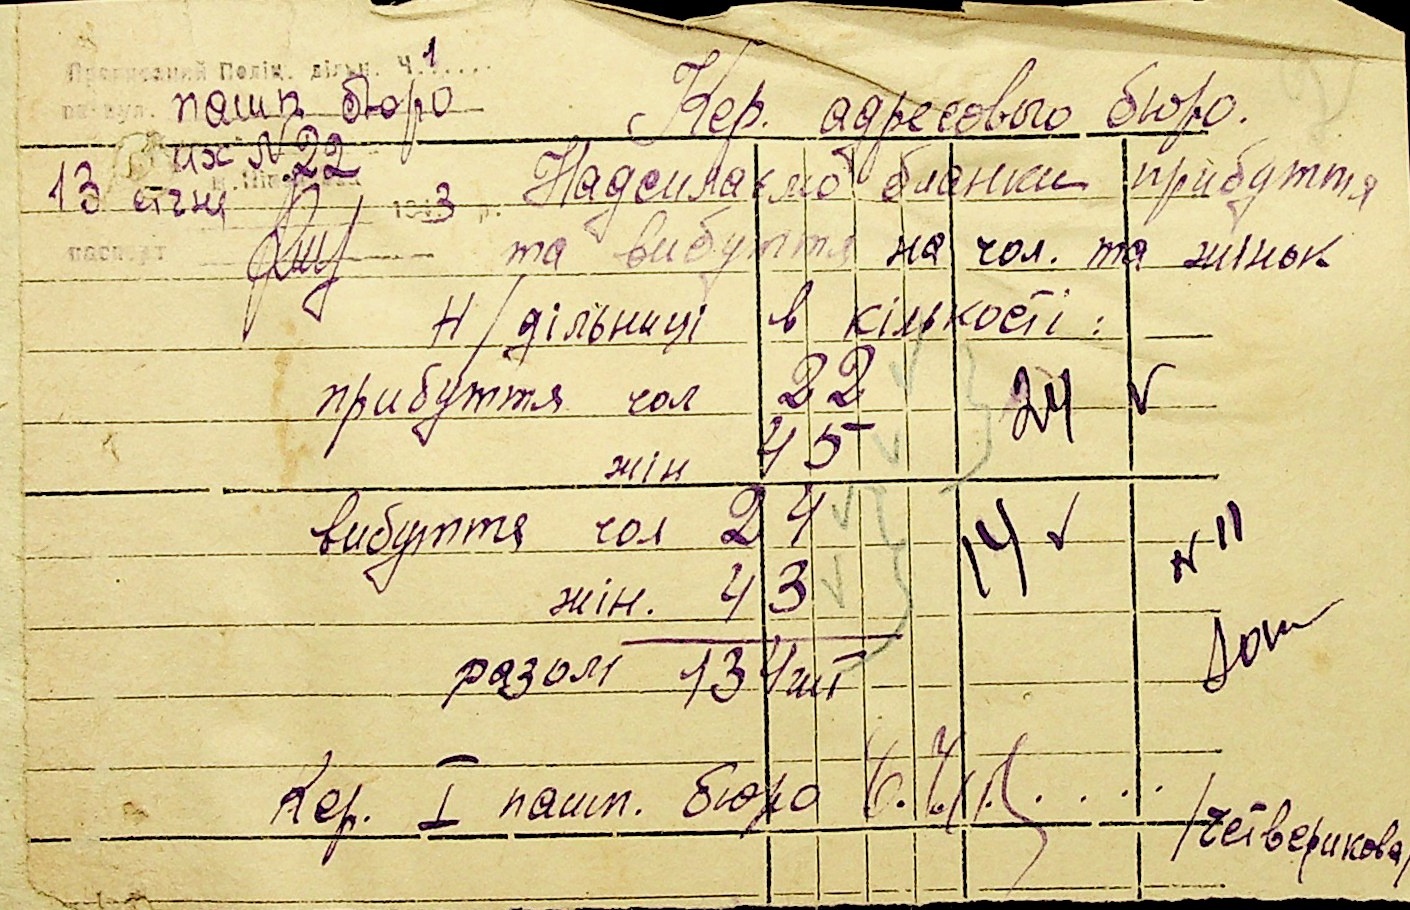 Прописаний Поліц. дільн. Ч.1.....
на вул. пашп. бюро
вих №22
13 січня 1943 р.
паспорт
Кер. адресового бюро.
Надсилаємо бланки прибуття
та вибуття на чол. та жінок
Н/дільниці в кількості:
прибуття чол 22
жін 45
24 ✓
вибуття чол 24
жін. 43
14 ✓
разом 134 шт
N 11
Кер. I пашп. бюро
/Четверикова/